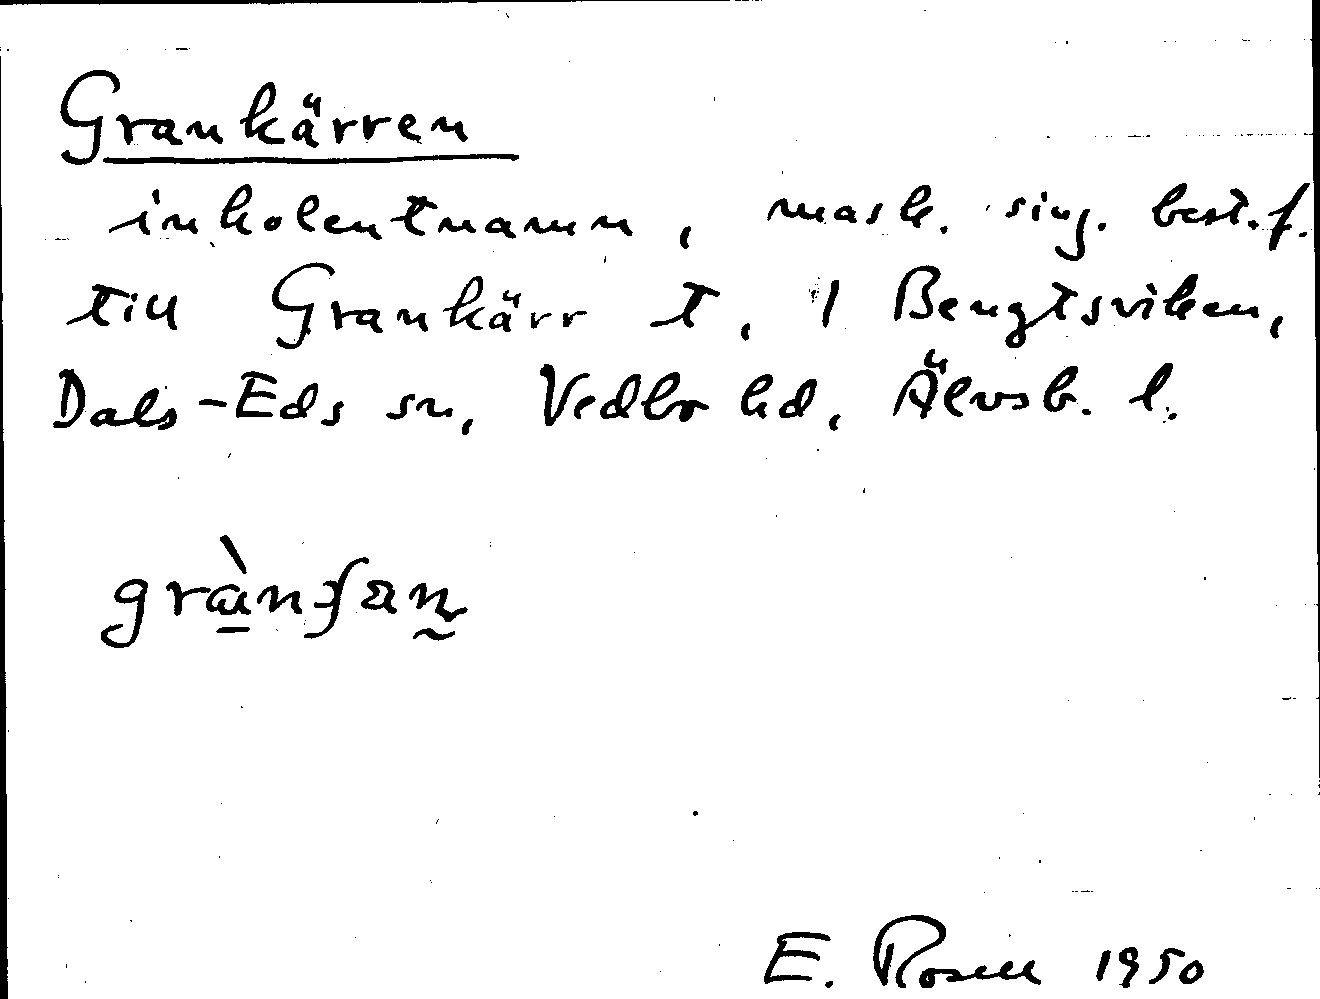 Grankärren
inkolentnamn, mask. sing. best. f.
till Grankärr t. 1 Bengtsviken,
Dals-Eds sn, Vedbo hd, Älvsb. l.
E. Rosell 1950